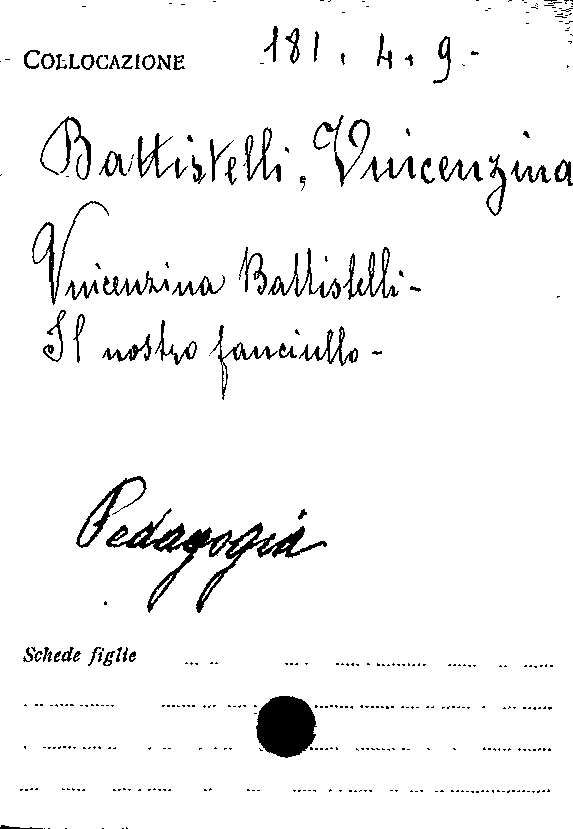 COLLOCAZIONE 181. 4. 9.-
Battistelli, Vincenzina
Vincenzina Battistelli-
Il nostro fanciullo-
Pedagogia
Schede figlie